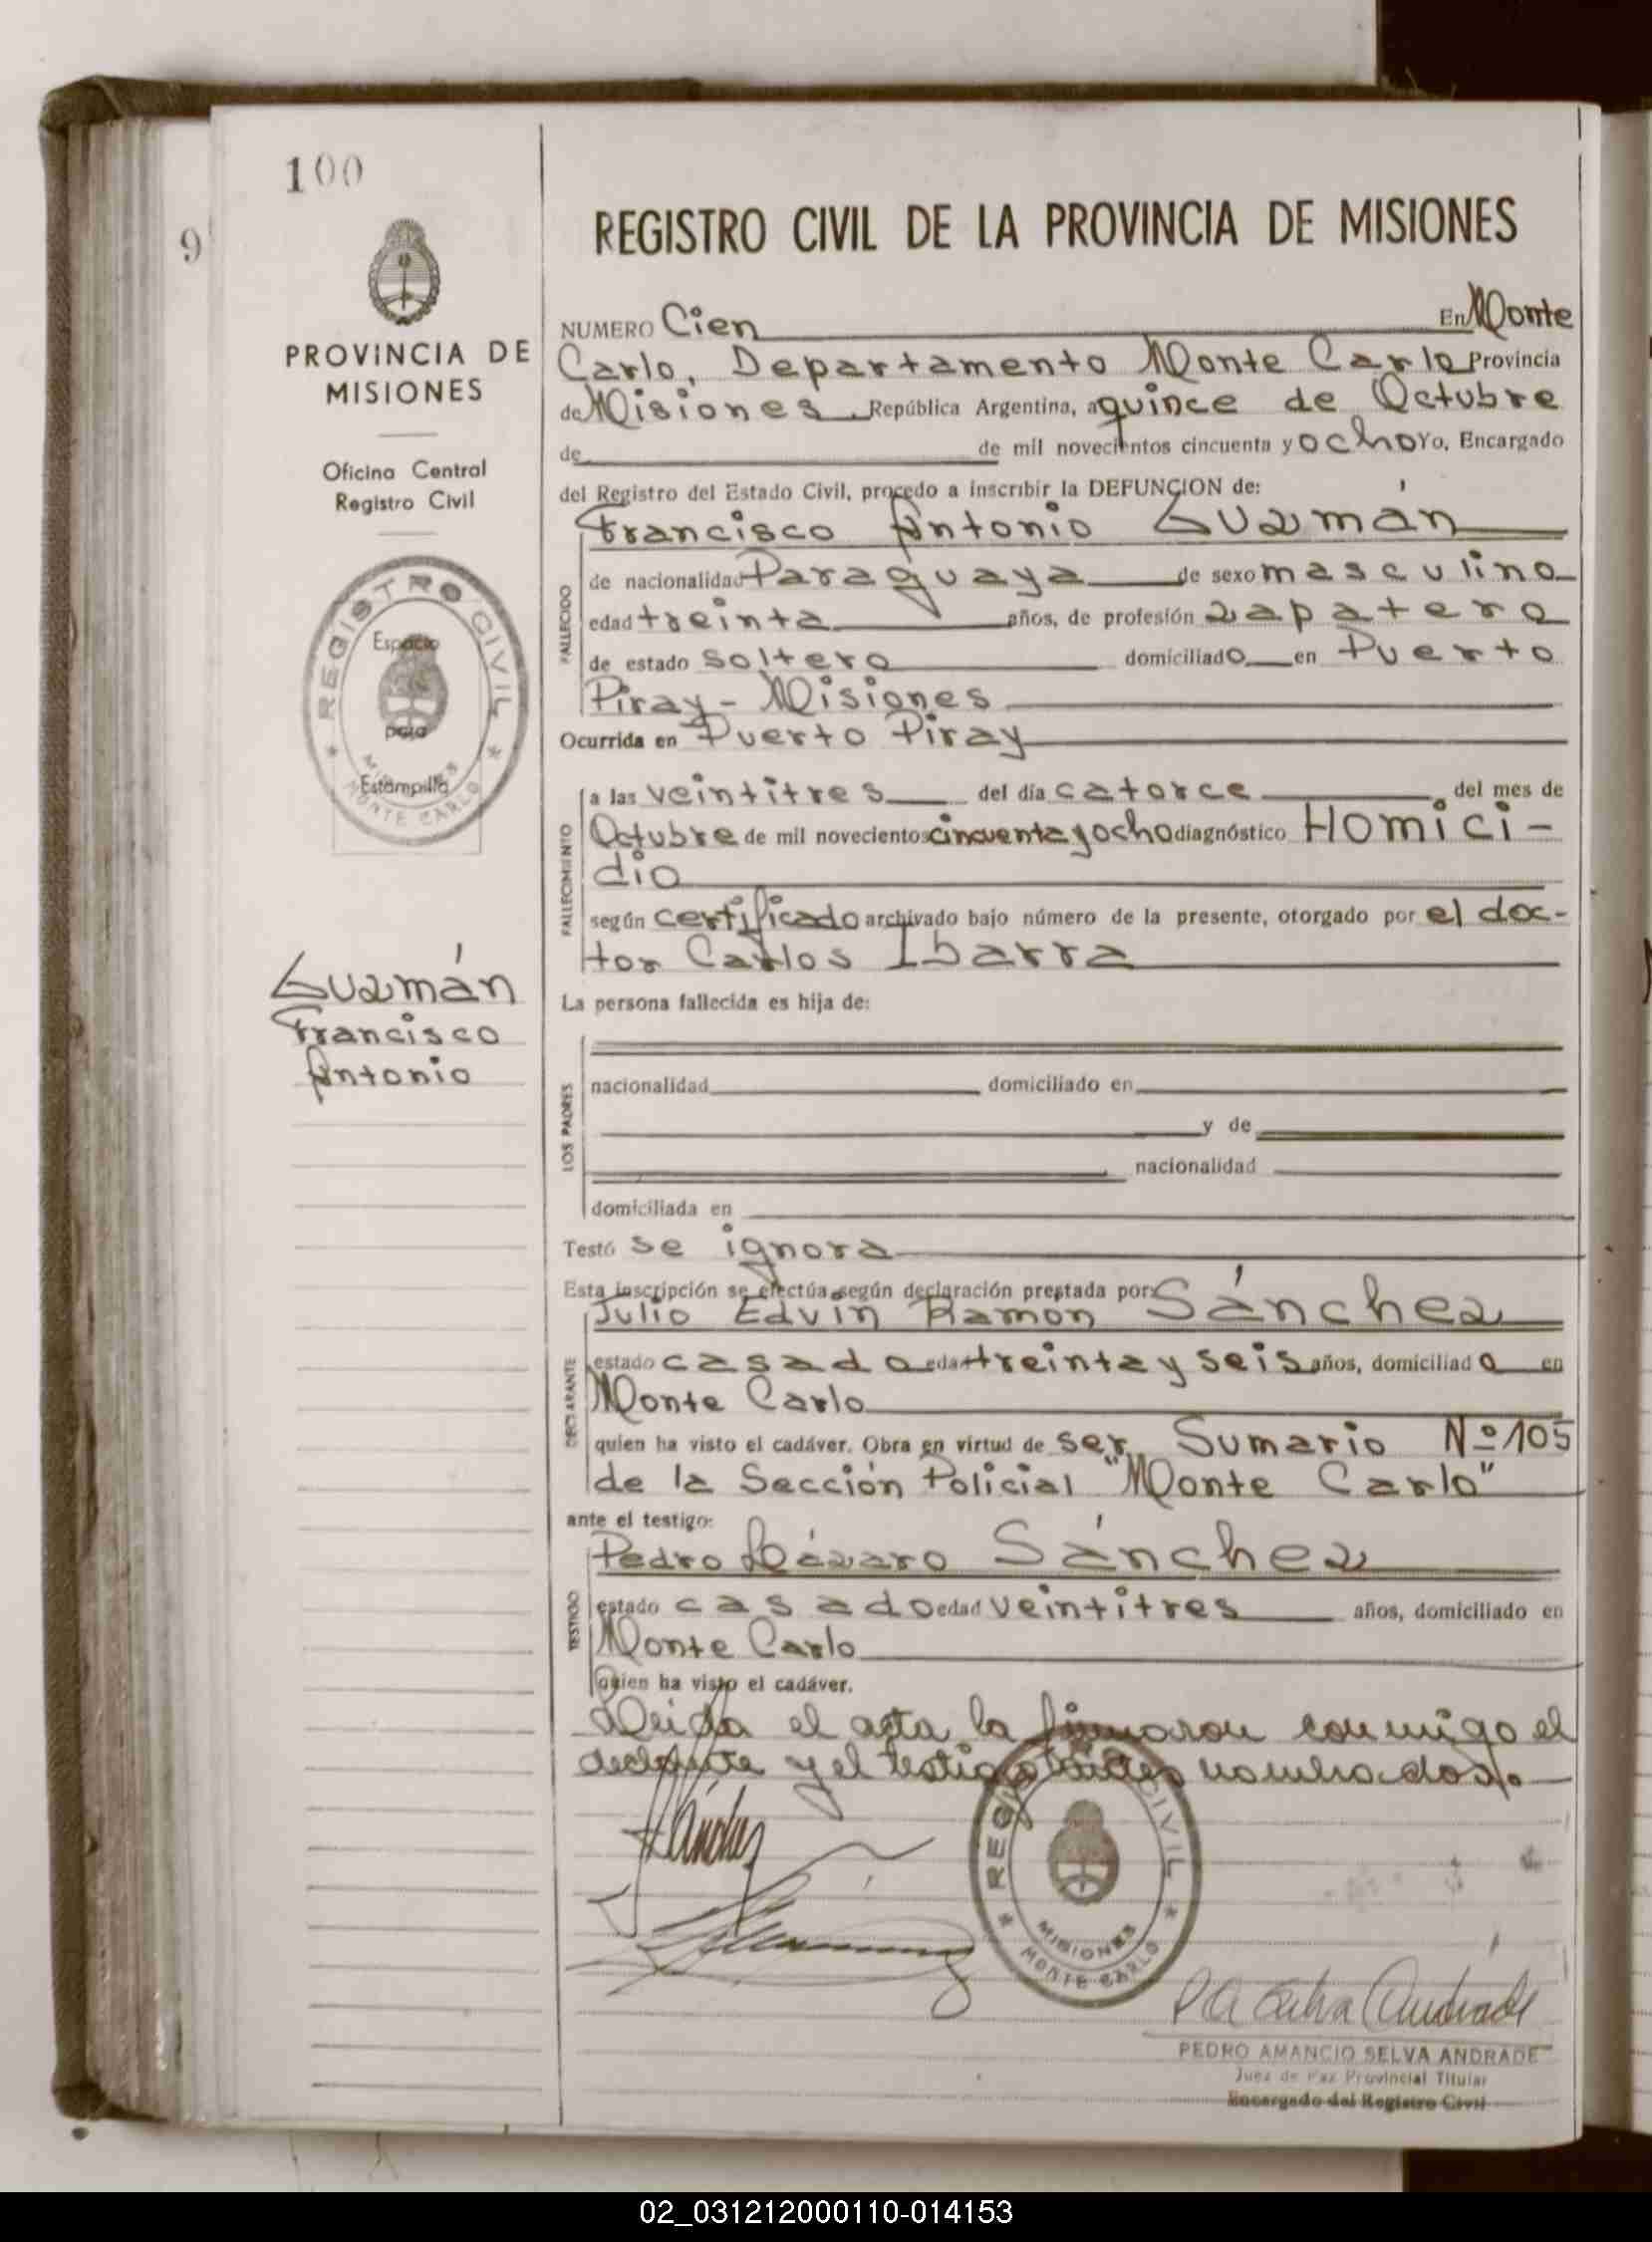 100
9
PROVINCIA DE
MISIONES
Oficina Central
Registro Civil
REGISTRO CIVIL
Espacio
para
Estampilla
MISIONES
MONTE CARLO
Guzmán
Francisco
Antonio
REGISTRO CIVIL DE LA PROVINCIA DE MISIONES
NUMERO Cien En Monte
Carlo, Departamento Monte Carlo Provincia
de Misiones República Argentina, a quince de Octubre
de de mil novecientos cincuenta y ocho Yo, Encargado
del Registro del Estado Civil, procedo a inscribir la DEFUNCION de:
Francisco Antonio Guzmán
FALLECIDO
de nacionalidad Paraguaya de sexo masculino
edad treinta años, de profesión zapatero
de estado soltero domiciliado en Puerto
Piray - Misiones
Ocurrida en Puerto Piray
FALLECIMIENTO
a las veintitres del día catorce del mes de
Octubre de mil novecientos cincuenta y ocho diagnóstico Homici-
dio
según certificado archivado bajo número de la presente, otorgado por el doc-
tor Carlos Ibarra
La persona fallecida es hija de:
LOS PADRES
nacionalidad domiciliado en
y de
nacionalidad
domiciliada en
Testó se ignora
Esta inscripción se efectúa según declaración prestada por: Sánchez
Julio Edvin Ramon
DECLARANTE
estado casado edad treinta y seis años, domiciliado en
Monte Carlo
quien ha visto el cadáver. Obra en virtud de ser Sumario Nº 105
de la Sección Policial "Monte Carlo"
ante el testigo:
Pedro Lázaro Sánchez
TESTIGO
estado casado edad veintitres años, domiciliado en
Monte Carlo
quien ha visto el cadáver.
Leida el acta la firmaron conmigo el
declarante y el testigo nombrados.
Sánchez
REGISTRO CIVIL
MISIONES
MONTE CARLO
P A Selva Andrade
PEDRO AMANCIO SELVA ANDRADE
Juez de Paz Provincial Titular
Encargado del Registro Civil
02_031212000110-014153